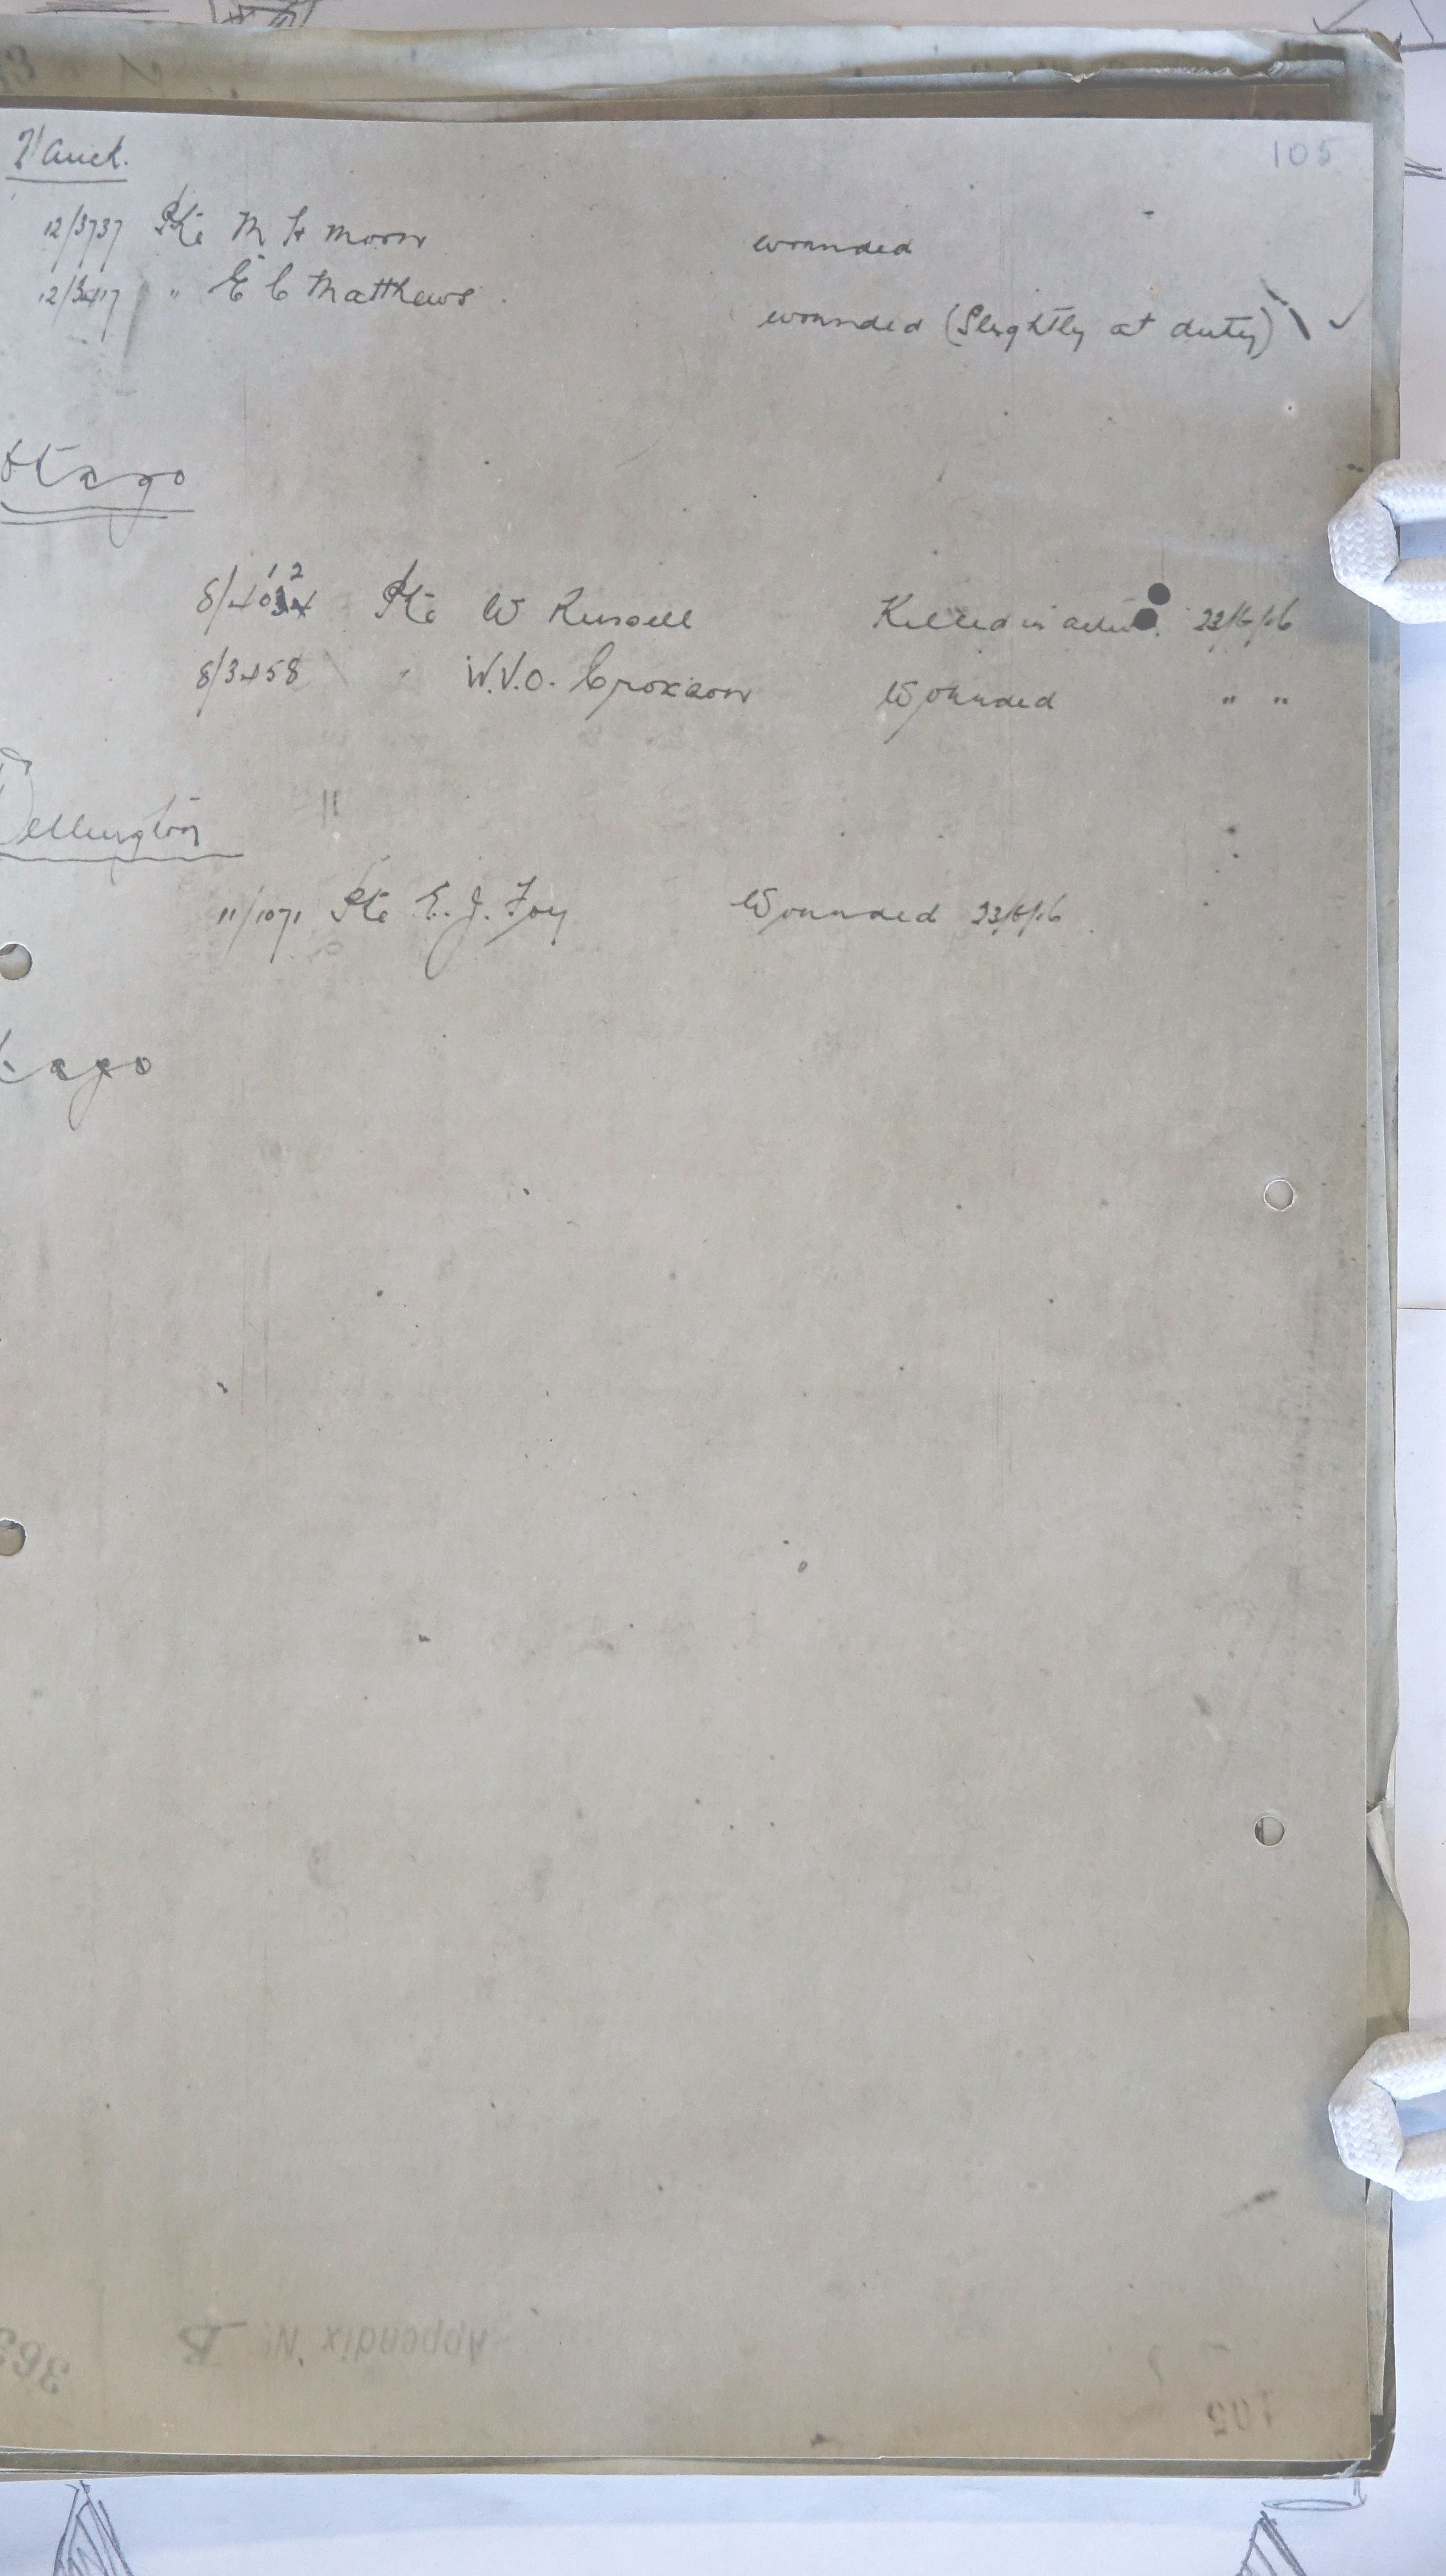 105
2/ Auck.
12/3737 Pte M H Moon wounded
12/3417 " E C Matthews wounded (Slightly at duty)
Otago
8/4012 Pte W Russell Killed in action 23/6/16
8/3458 " W.V.O. Croxson Wounded " "
Wellington
11/1071 Pte E. J. Foy Wounded 23/6/16
tago
Appendix No. B